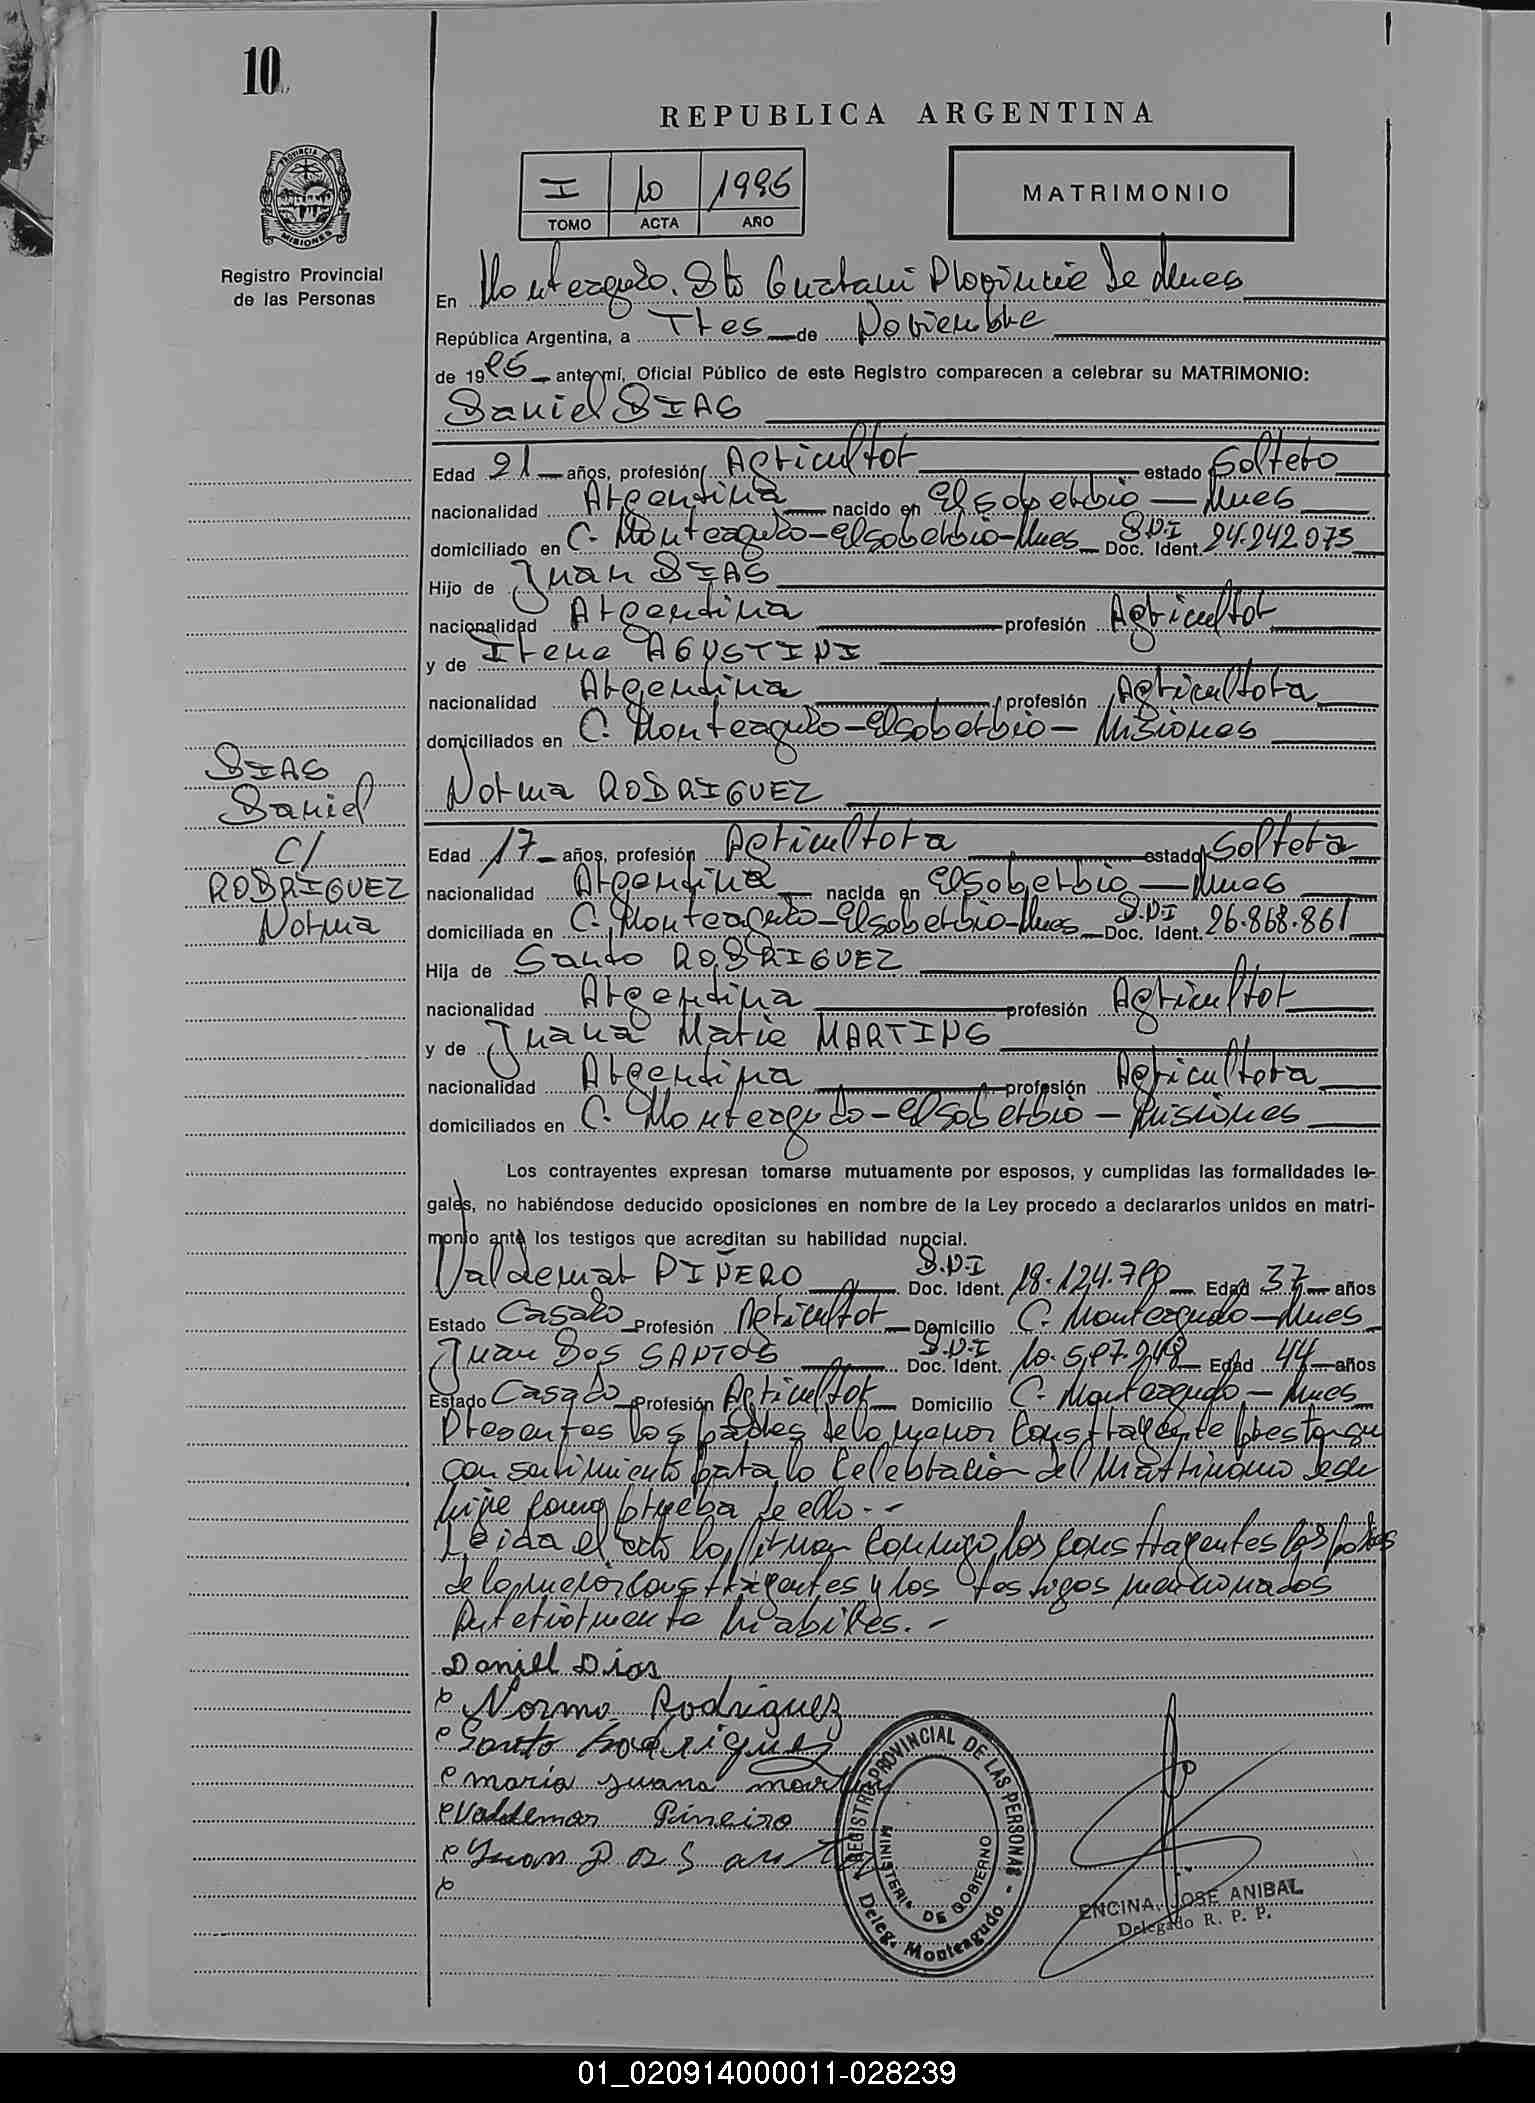 10
REPUBLICA ARGENTINA
I 10 1995
TOMO ACTA AÑO
MATRIMONIO
PROVINCIA DE
MISIONES
Registro Provincial
de las Personas
En Monteagudo. Dto Guarani Provincia de Mnes
República Argentina, a Tres de Noviembre
de 1995 ante mí, Oficial Público de este Registro comparecen a celebrar su MATRIMONIO:
Daniel DIAS
Edad 21 años, profesión Agricultor estado Soltero
nacionalidad Argentina nacido en El soberbio — Mnes
domiciliado en C. Monteagudo - El soberbio - Mnes D.N.I Doc. Ident. 24.242.073
Hijo de Juan DIAS
nacionalidad Argentina profesión Agricultor
y de Irene AGUSTINI
nacionalidad Argentina profesión Agricultora
domiciliados en C. Monteagudo - El soberbio - Misiones
DIAS
Daniel
C/
RODRIGUEZ
Norma
Norma RODRIGUEZ
Edad 17 años, profesión Agricultora estado Soltera
nacionalidad Argentina nacida en El Soberbio — Mnes
domiciliada en C. Monteagudo - El soberbio - Mnes D.N.I Doc. Ident. 26.868.861
Hija de Santo RODRIGUEZ
nacionalidad Argentina profesión Agricultor
y de Juana Maria MARTINS
nacionalidad Argentina profesión Agricultora
domiciliados en C. Monteagudo - El soberbio - Misiones
Los contrayentes expresan tomarse mutuamente por esposos, y cumplidas las formalidades le-
gales, no habiéndose deducido oposiciones en nombre de la Ley procedo a declararlos unidos en matri-
monio ante los testigos que acreditan su habilidad nupcial.
Valdemar PIÑERO D.N.I Doc. Ident. Edad 37 años
Estado Casado Profesión Agricultor Domicilio C. Monteagudo - Mnes
Juan Dos SANTOS D.N.I Doc. Ident. Edad 44 años
Estado Casado Profesión Agricultor Domicilio C. Monteagudo - Mnes
Presentes los padres de la menor constrayente prestan su
consentimiento para la celebracion del Matrimonio de su
hija como prueba de ello. - -
Leida el acta la firman conmigo los constrayentes los padres
de la menor constrayentes y los testigos mencionados
Anteriormente habiles. -
Daniel Dias
Norma Rodriguez
Santo Rodriguez
maria juana martins
Valdemar Pineiro
Juan Dos Santos
REGISTRO PROVINCIAL DE LAS PERSONAS
MINISTERIO DE GOBIERNO
Deleg. Monteagudo
ENCINA, JOSE ANIBAL
Delegado R. P. P.
01_020914000011-028239